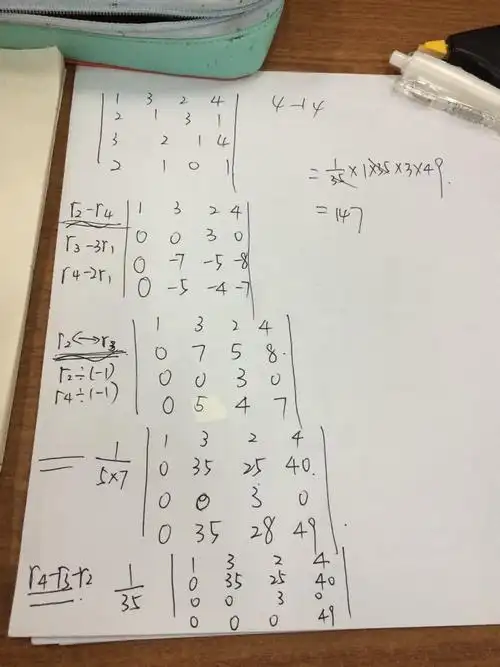 1 3 2 4
2 1 3 1
3 2 1 4
2 1 0 1
4-14
= 1/35 × 1 × 35 × 3 × 49.
= 147
r2-r4
r3-3r1
r4-2r1
1 3 2 4
0 0 3 0
0 -7 -5 -8
0 -5 -4 -7
r2↔r3
r2÷(-1)
r4÷(-1)
1 3 2 4
0 7 5 8.
0 0 3 0
0 5 4 7
= 1/5×7
1 3 2 4
0 35 25 40.
0 0 3 0
0 35 28 49.
r4-r3-r2
= 1/35
1 3 2 4
0 35 25 40
0 0 3 0
0 0 0 49